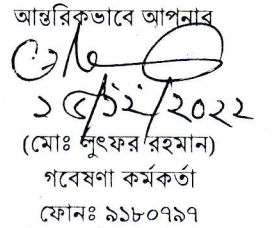 আন্তরিকভাবে আপনার
২৫/১২/২০২২
(মোঃ লুৎফর রহমান)
গবেষণা কর্মকর্তা
ফোনঃ ৯১৮০৭৯৭